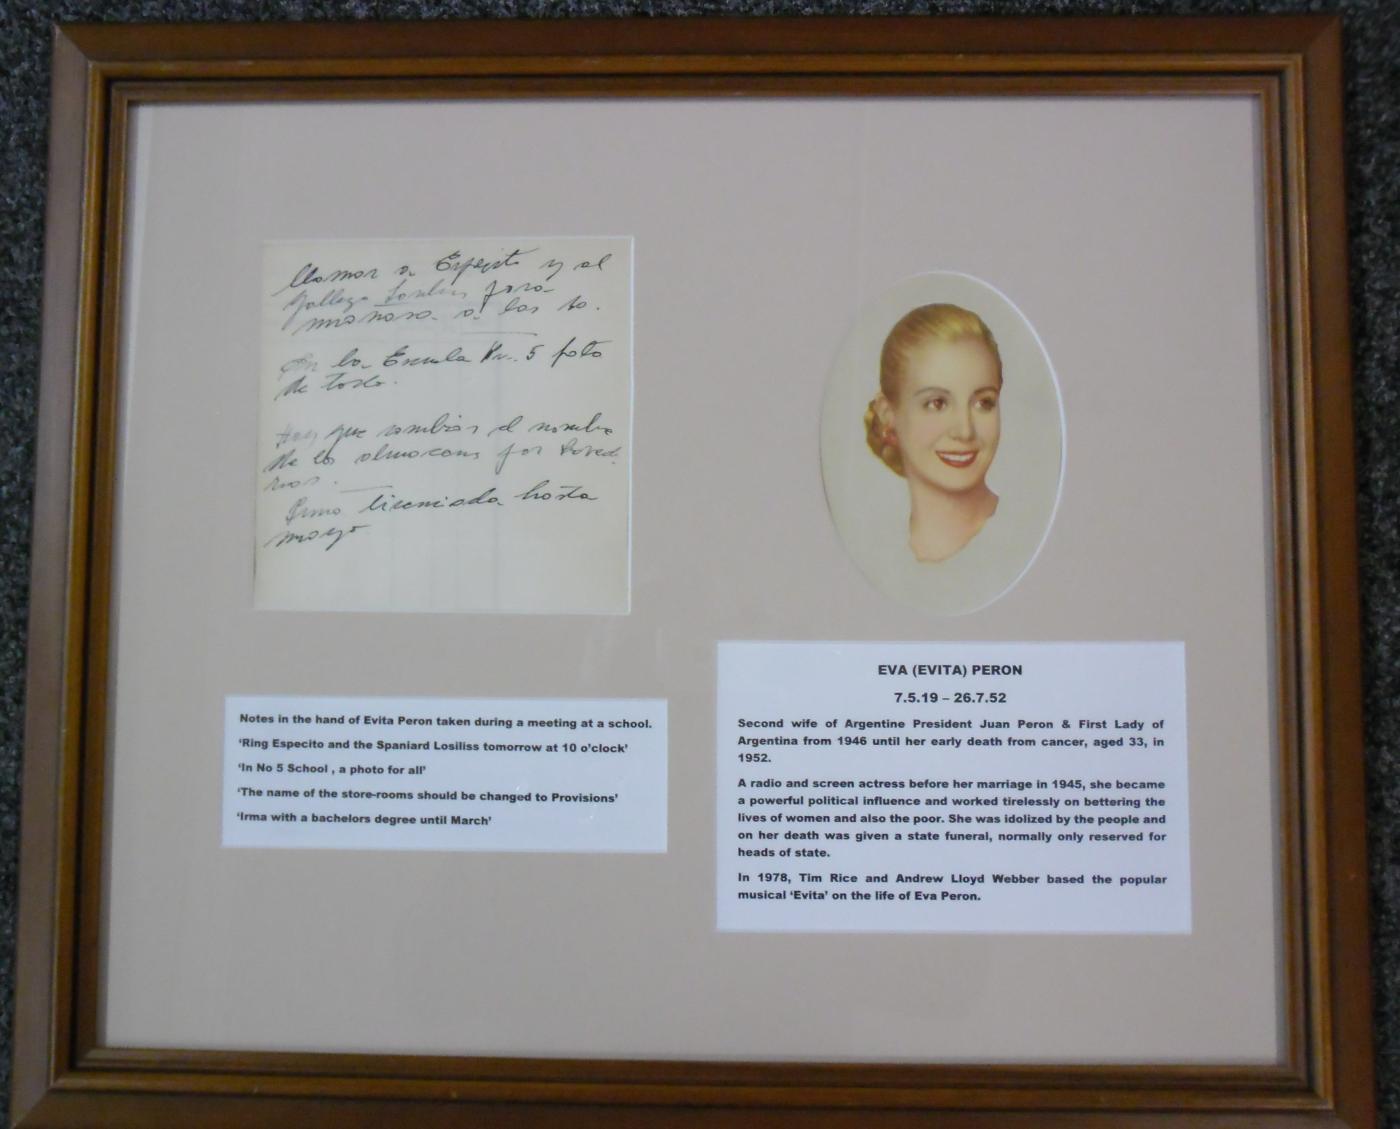 llamar a Espejito y al
Gallego para
mañana a las 10.
En la Escuela Nr. 5 foto
de todo.
Hay que cambiar el nombre
de los almacens por Proved
rias.
Irma licenciada hasta
mayo
Notes in the hand of Evita Peron taken during a meeting at a school.
‘Ring Especito and the Spaniard Losiliss tomorrow at 10 o’clock’
‘In No 5 School , a photo for all’
‘The name of the store-rooms should be changed to Provisions’
‘Irma with a bachelors degree until March’
EVA (EVITA) PERON
7.5.19 – 26.7.52
Second wife of Argentine President Juan Peron & First Lady of
Argentina from 1946 until her early death from cancer, aged 33, in
1952.
A radio and screen actress before her marriage in 1945, she became
a powerful political influence and worked tirelessly on bettering the
lives of women and also the poor. She was idolized by the people and
on her death was given a state funeral, normally only reserved for
heads of state.
In 1978, Tim Rice and Andrew Lloyd Webber based the popular
musical ‘Evita’ on the life of Eva Peron.